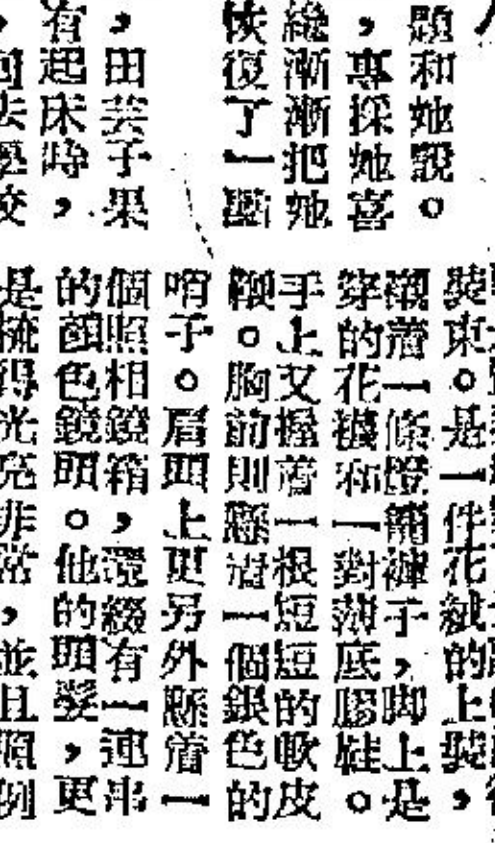 題和她說。
，專採她喜
纔漸漸把她
恢復了一點
，田芸子果
有起床時，
裝束。是一件花絨的上裝，
襯着一條燈籠褲子，脚上是
穿的花襪和一對薄底膠鞋。
手上又握着一根短短的軟皮
鞭。胸前則懸着一個銀色的
哨子。肩頭上更另外懸着一
個照相鏡箱，還綴有一連串
的顏色鏡頭。他的頭髮，更
是梳得光亮非常，並且照例